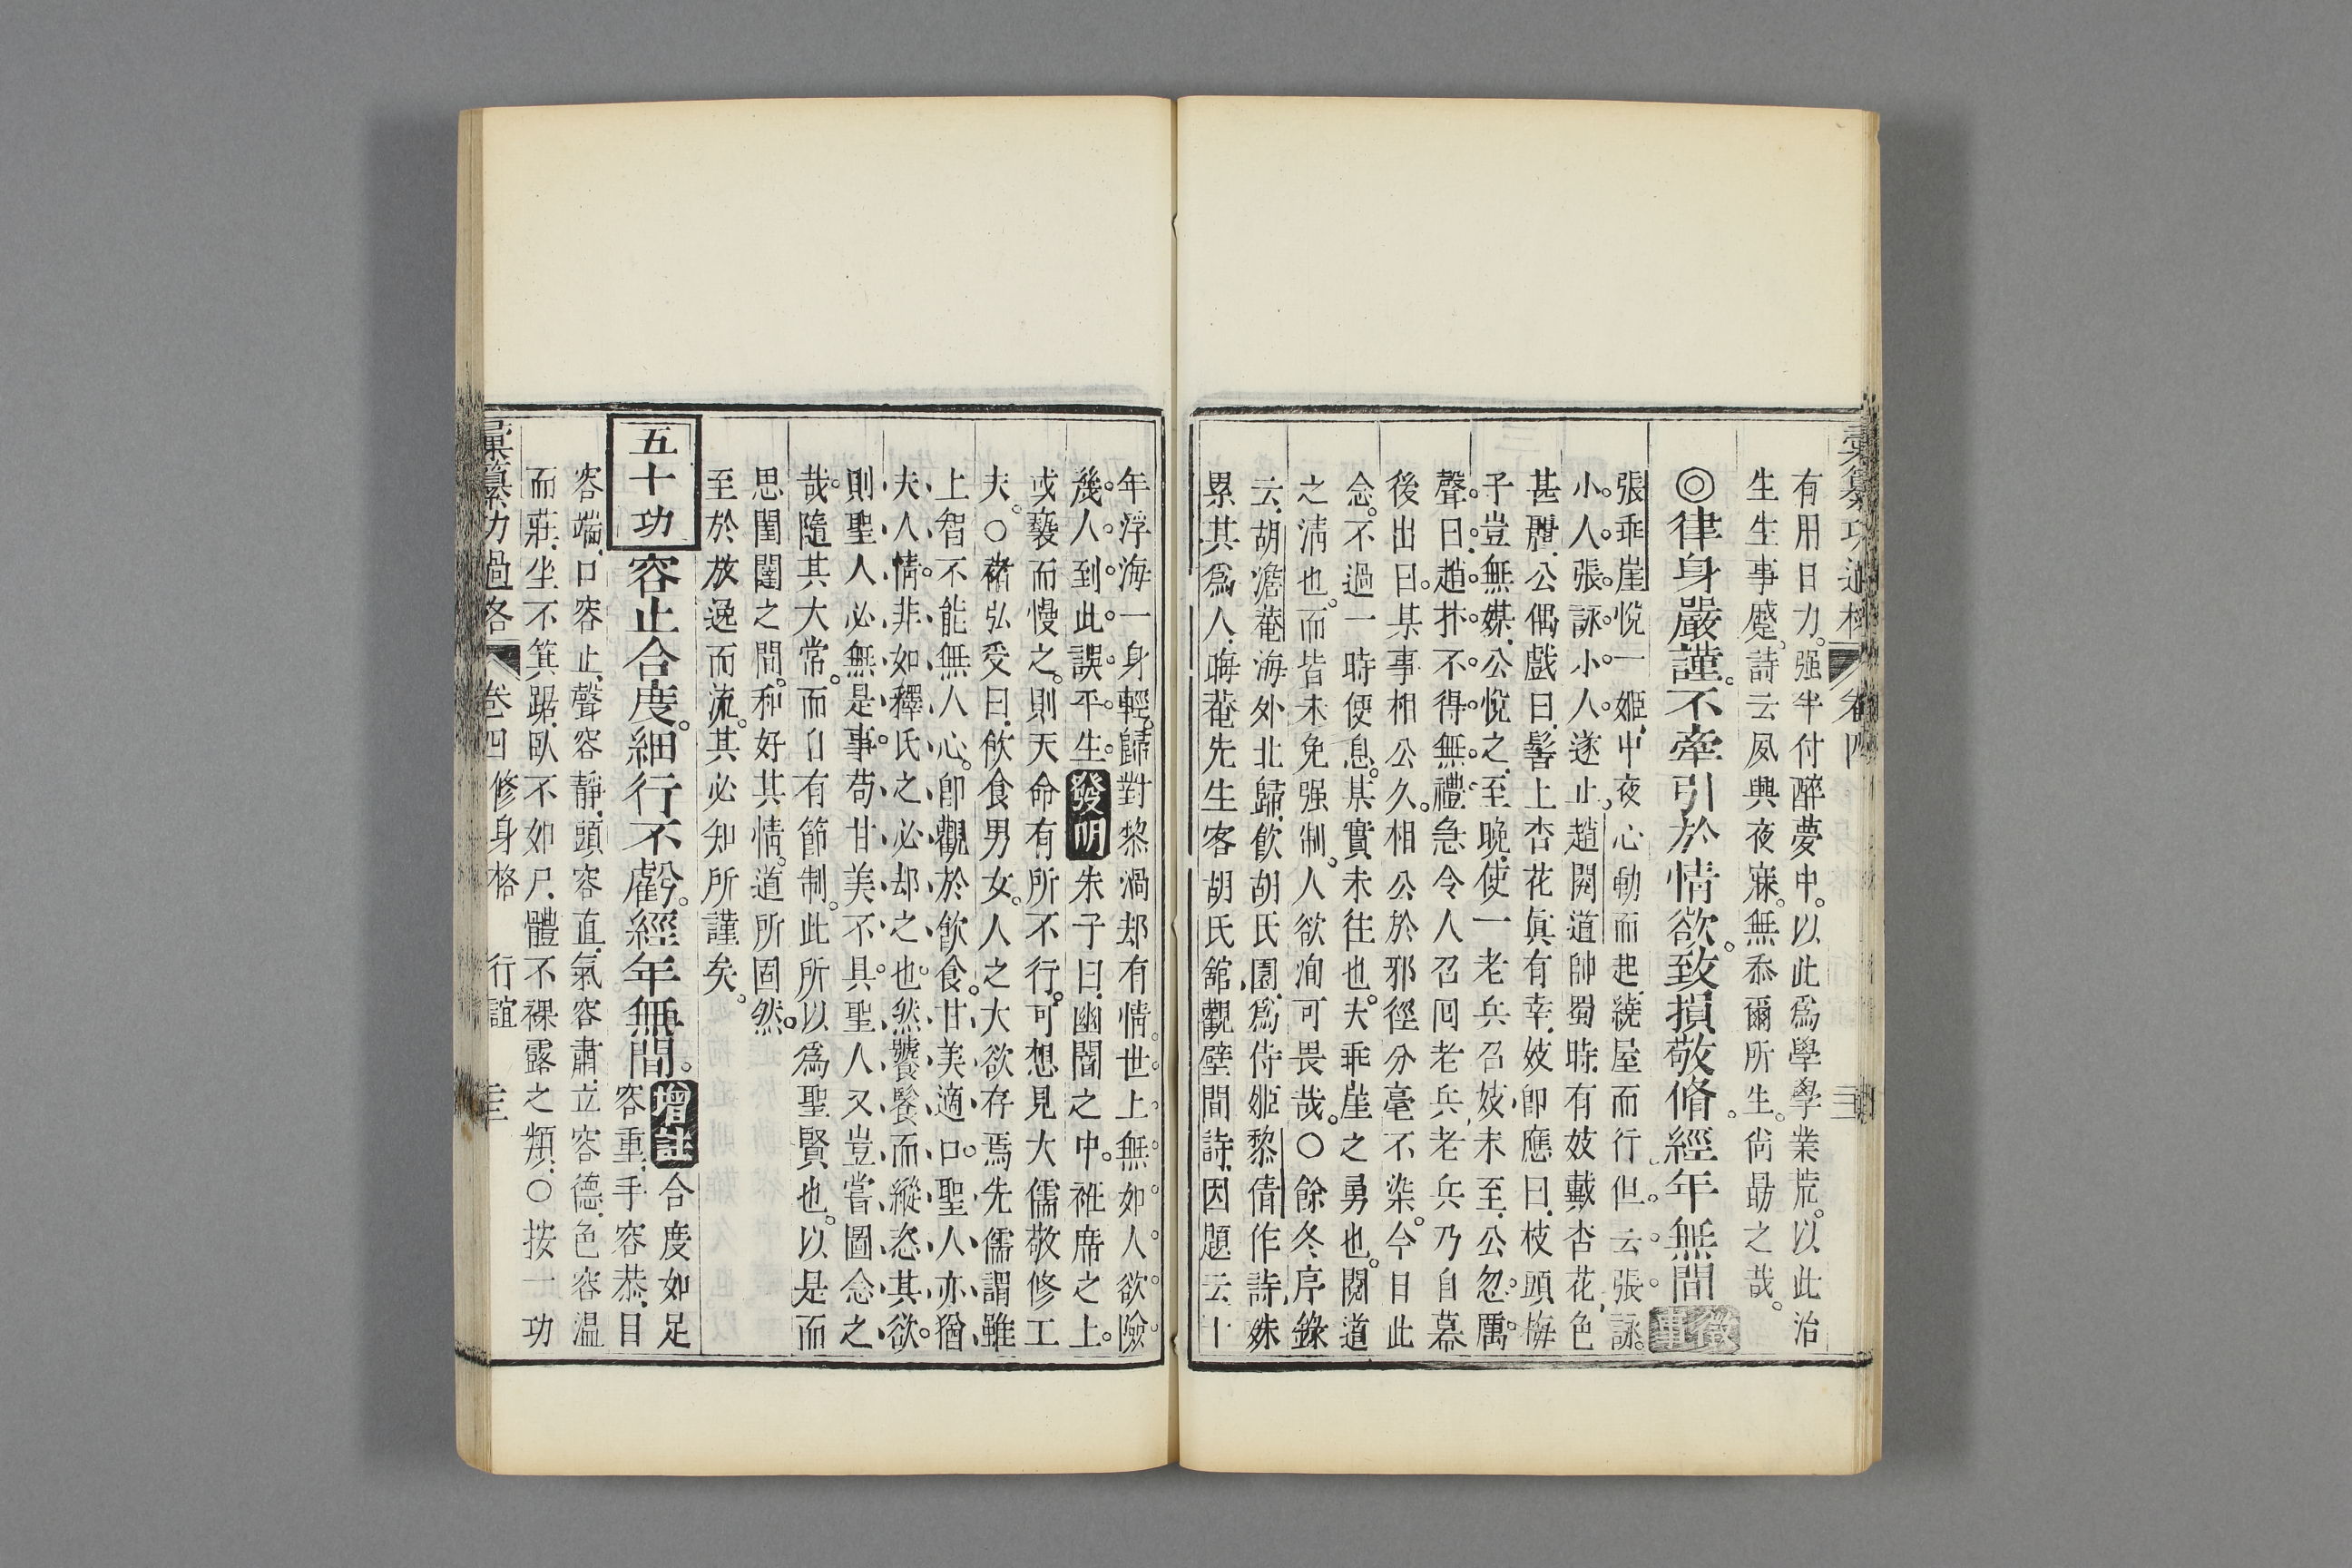 彙纂功過格 卷四
有用日力。强半付醉夢中。以此爲學學業荒。以此治
生生事蹙。詩云夙興夜寐。無忝爾所生。尙勗之哉。
◎律身嚴謹。不牽引於情欲。致損敬脩。經年無間 徵事
張乖崖悅一姬，中夜心動而起，繞屋而行，但云張詠。
小人。張詠小人。遂止，趙閱道帥蜀時，有妓戴杏花，色
甚麗，公偶戲曰，髻上杏花眞有幸，妓卽應曰，枝頭梅
子豈無媒，公悅之，至晚，使一老兵召妓，未至，公忽厲
聲曰，趙抃不得無禮。急令人召囘老兵，老兵乃自幕
後出曰。某事相公久。相公於邪徑分毫不染。今日此
念。不過一時便息。某實未往也。夫乖崖之勇也。閱道
之淸也。而皆未免强制。人欲洵可畏哉。○餘冬序錄
云，胡澹菴海外北歸，飮胡氏園，爲侍姬黎倩作詩，殊
累其爲人，晦菴先生客胡氏舘，觀壁間詩，因題云，十
年浮海一身輕。歸對黎渦却有情。世上無如人欲險。
幾人到此誤平生。發明 朱子曰，幽闇之中。袵席之上。
或褻而慢之。則天命有所不行。可想見大儒敬修工
夫。○褚弘受曰，飮食男女。人之大欲存焉先儒謂雖
上智不能無人心。卽觀於飮食。甘美適口。聖人亦猶
夫人情。非如釋氏之必却之也。然饕餮而縱恣其欲。
則聖人必無是事。苟甘美不具。聖人又豈嘗圖念之
哉。隨其大常。而自有節制。此所以爲聖賢也。以是而
思閨闥之間。和好其情。道所固然。
至於放逸而流。其必知所謹矣。
五十功 容止合度。細行不虧。經年無間。增註 合度如足
容重，手容恭，目
容端，口容止，聲容靜，頭容直，氣容肅，立容德，色容温
而莊，坐不箕踞，臥不如尸，體不裸露之類，○按一功
彙纂功過格 卷四 修身格 行誼